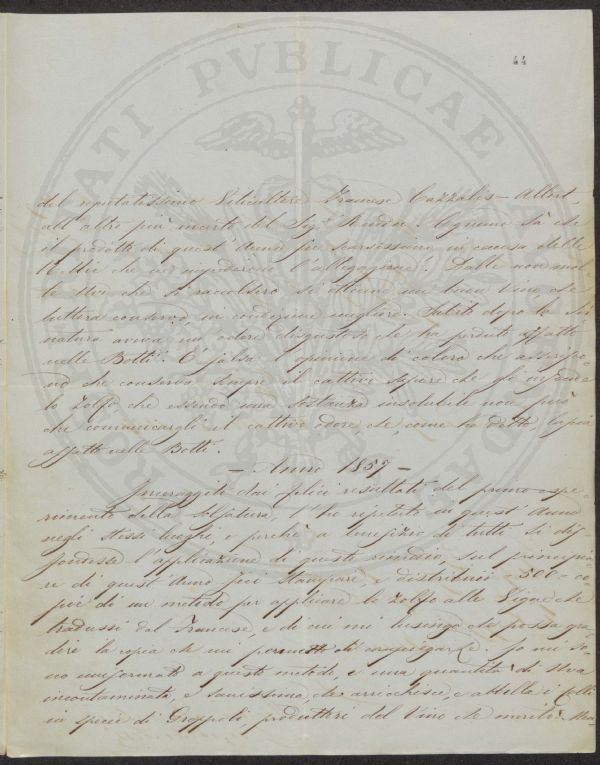 44
del reputatissimo Viticultore Francese Cazzalis-Allut,
all'altro più incerto del Sig.r Ognuno sà che
il prodotto di quest'Anno fu scarsissimo in causa delle
che ne impedirono l'allegagione. Dalle non mol
te Uve che si raccolsero si ottenne un buon Vino che
tuttora conservo, in condizione migliore. Subito dopo la Svi
natura aveva un odore disgustoso che ha perduto affatto
nelle Botti. È falsa l'opinione di coloro che asseriscono
no che conserva sempre il cattivo sapore che gli infonde
lo Zolfo che essendo una sostanza insolubile non può
che comunicargli il cattivo odore che, come ho detto,
affatto nelle Botti.
- Anno 1857 -
Incoraggito dai felici resultati del primo espe
rimento della Solfatura, l'ho repetuto in quest'Anno
negli stessi luoghi, e perchè a benefizio di tutti si dif
fondesse l'applicazione di questo rimedio, sul principia
re di quest'Anno feci stampare, e distribuii 500 co
pie di un metodo per applicare lo Zolfo alle Vigne che
tradussi dal Francese, e di cui mi lusingo che possa gra
dire la copia che mi permetto di compiegarLe. Io mi so
no uniformato a questo metodo, e una quantità di Uva
incontaminata, e sanissima, che arricchisce, e abbella i Colli
in specie di Groppoli, produttori del Vino che meritò